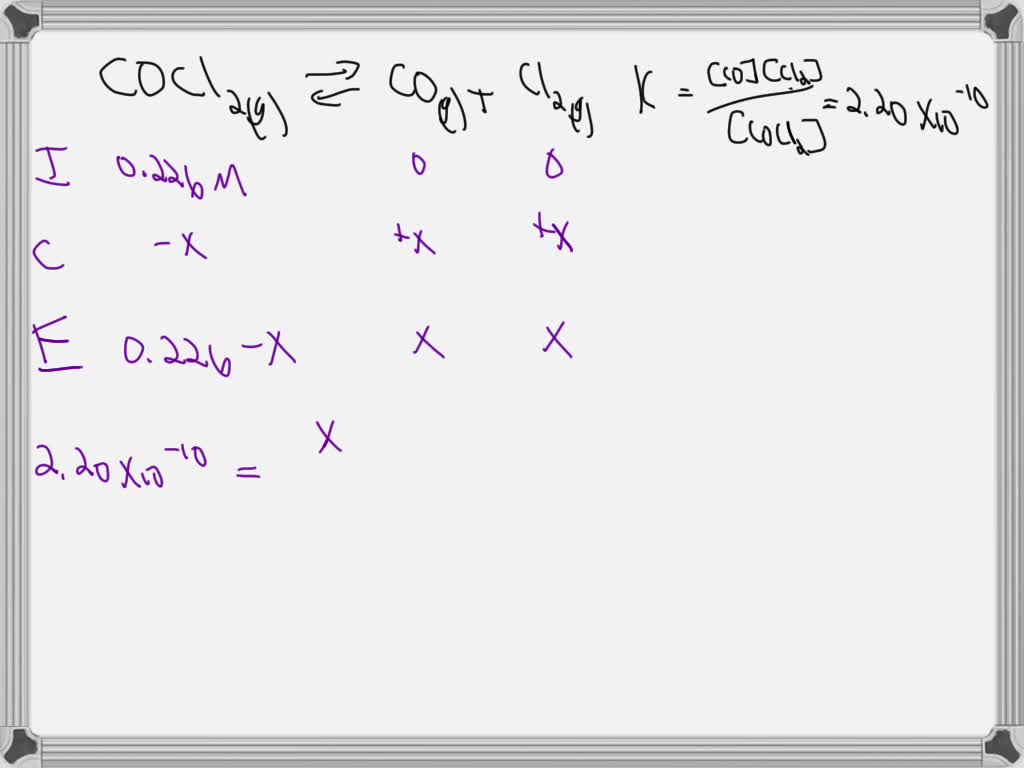 COCl2(g) ⇌ CO(g) + Cl2(g) K = [CO][Cl2] / [COCl2] = 2.20 x10^-10
I 0.226 M 0 0
C -x +x +x
E 0.226 -x x x
2.20 x10^-10 = x